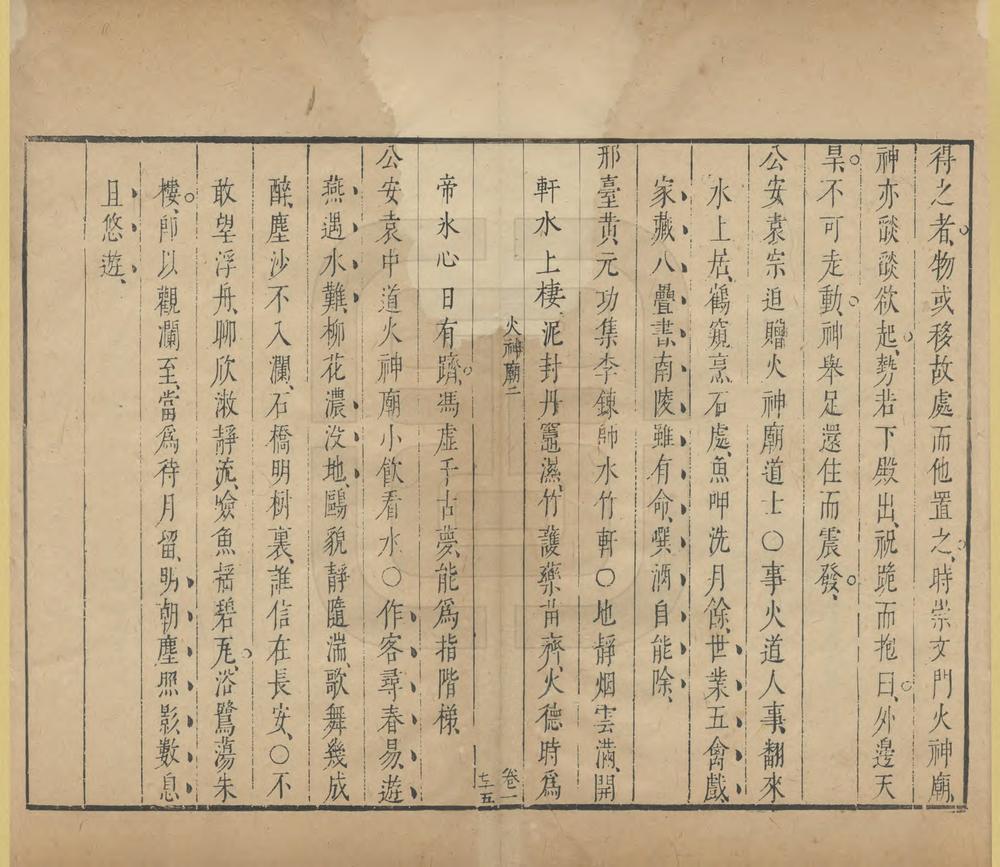 得之者、物或移故處而他置之、時崇文門火神廟、
神亦談談欲起、勢若下殿出、祝跪而抱曰、外邊天
旱、不可走動、神舉足還住而震發、
公安袁宗迫贈火神廟道士〇事火道人事、翻來
水上居、鶴窺烹石處、魚呷洗月餘、世業五禽戲、
家藏八疊書、南陵雖有命、噀酒自能除、
邢臺黃元功集李鍊師水竹軒〇地靜烟雲滿、開
軒水上棲、泥封丹竈濕、竹護藥苗齊、火德時爲
火神廟二
卷一
七十五
帝、水心日有躋、馮虛千古夢、能爲指階梯、
公安袁中道火神廟小飲看水〇作客尋春易、遊
燕遇水難、柳花濃沒地、鷗貌靜隨湍、歌舞幾成
醉、塵沙不入瀾、石橋明樹裏、誰信在長安、〇不
敢望浮舟、聊欣漱靜流、噞魚搖碧瓦、浴鷺蕩朱
樓、師以觀瀾至、當爲待月留、明朝塵照影、數息
且悠遊、